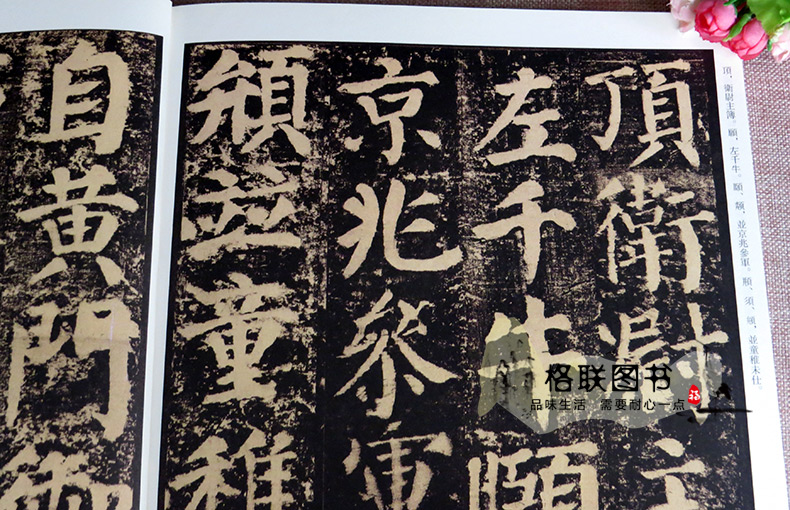 頂衛尉主
左千牛頤
京兆參軍
並童稚
自黃門御
頂,衛尉主簿。願,左千牛。頤、並京兆參軍。須、並童稚未仕。
格联图书
品味生活 需要耐心一点
福